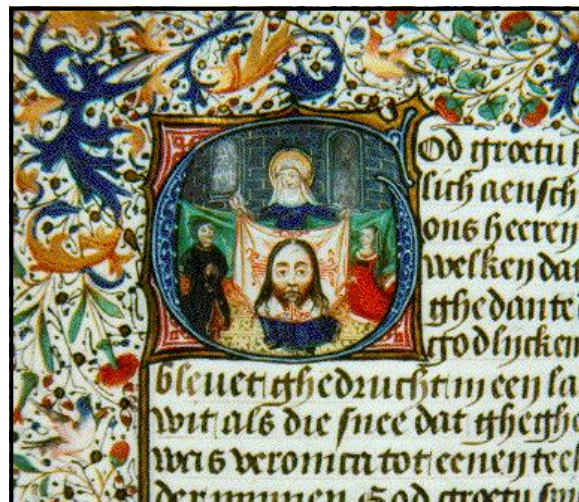 Od groetu h
lich aensch
ons heeren
welken dat
ghedante
godlijcken
bleuet ghedrucht in een la
wit als die snee dat ghegh
was veronica tot eenen teek
der minnen God groetu